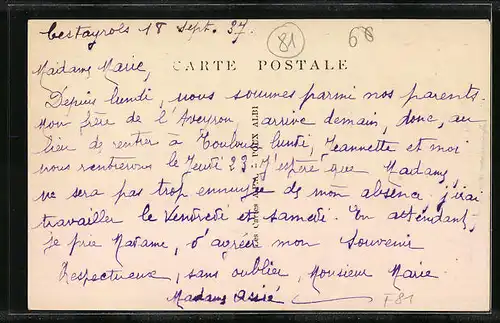 Cestayrols 18 Sept. 37.
81
60
Madame Marie,
CARTE POSTALE
Depuis lundi, nous sommes parmi nos parents.
Mon frère de l'Aveyron arrive demain, donc, au
lieu de rentrer à Toulouse lundi, Jeannette et moi
nous rentrerons le Jeudi 23. J'espère que Madame
ne sera pas trop ennuyée de mon absence, j'irai
travailler le Vendredi et samedi. En attendant,
je prie Madame, d'agréer mon souvenir
Respectueux, sans oublier, Monsieur Marie.
Madame Assié
T81